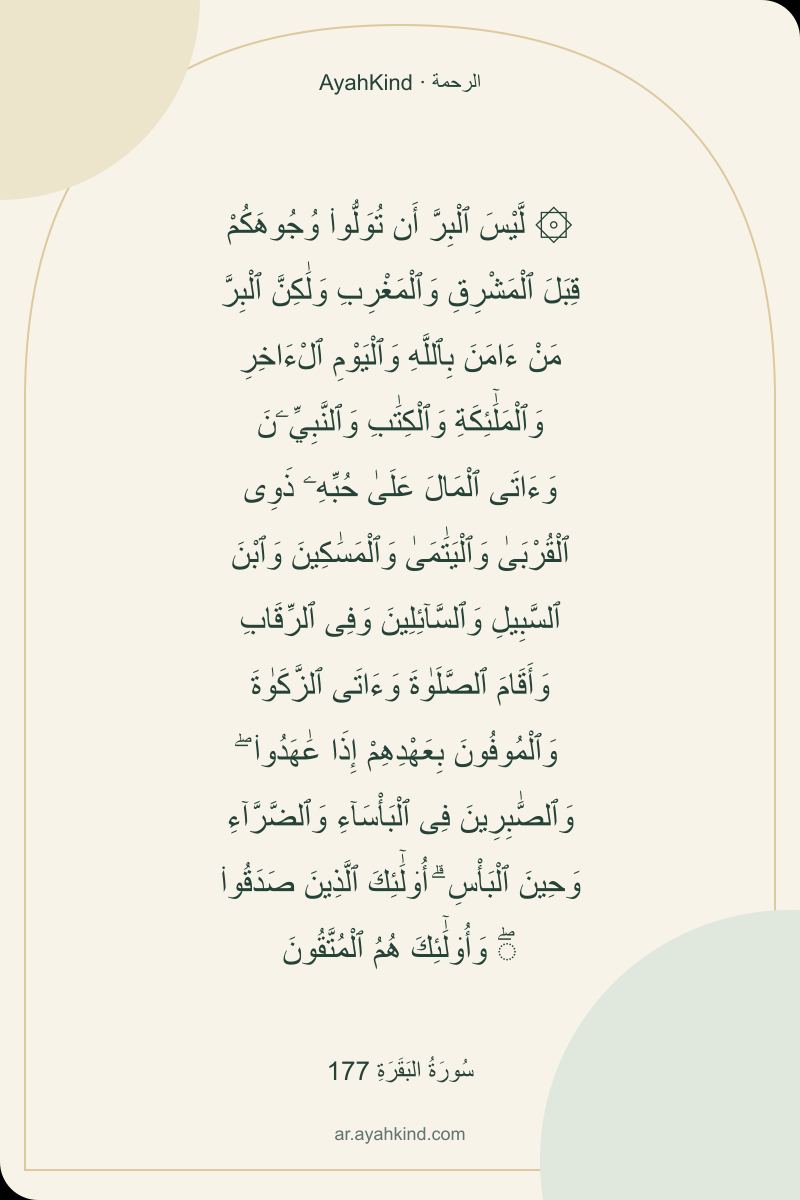 AyahKind · الرحمة
۞ لَّيْسَ ٱلْبِرَّ أَن تُوَلُّوا۟ وُجُوهَكُمْ
قِبَلَ ٱلْمَشْرِقِ وَٱلْمَغْرِبِ وَلَـٰكِنَّ ٱلْبِرَّ
مَنْ ءَامَنَ بِٱللَّهِ وَٱلْيَوْمِ ٱلْـَٔاخِرِ
وَٱلْمَلَـٰٓئِكَةِ وَٱلْكِتَـٰبِ وَٱلنَّبِيِّـۧنَ
وَءَاتَى ٱلْمَالَ عَلَىٰ حُبِّهِۦ ذَوِى
ٱلْقُرْبَىٰ وَٱلْيَتَـٰمَىٰ وَٱلْمَسَـٰكِينَ وَٱبْنَ
ٱلسَّبِيلِ وَٱلسَّآئِلِينَ وَفِى ٱلرِّقَابِ
وَأَقَامَ ٱلصَّلَوٰةَ وَءَاتَى ٱلزَّكَوٰةَ
وَٱلْمُوفُونَ بِعَهْدِهِمْ إِذَا عَـٰهَدُوا۟ ۖ
وَٱلصَّـٰبِرِينَ فِى ٱلْبَأْسَآءِ وَٱلضَّرَّآءِ
وَحِينَ ٱلْبَأْسِ ۗ أُو۟لَـٰٓئِكَ ٱلَّذِينَ صَدَقُوا۟
ۖ وَأُو۟لَـٰٓئِكَ هُمُ ٱلْمُتَّقُونَ
سُورَةُ البَقَرَةِ 177
ar.ayahkind.com